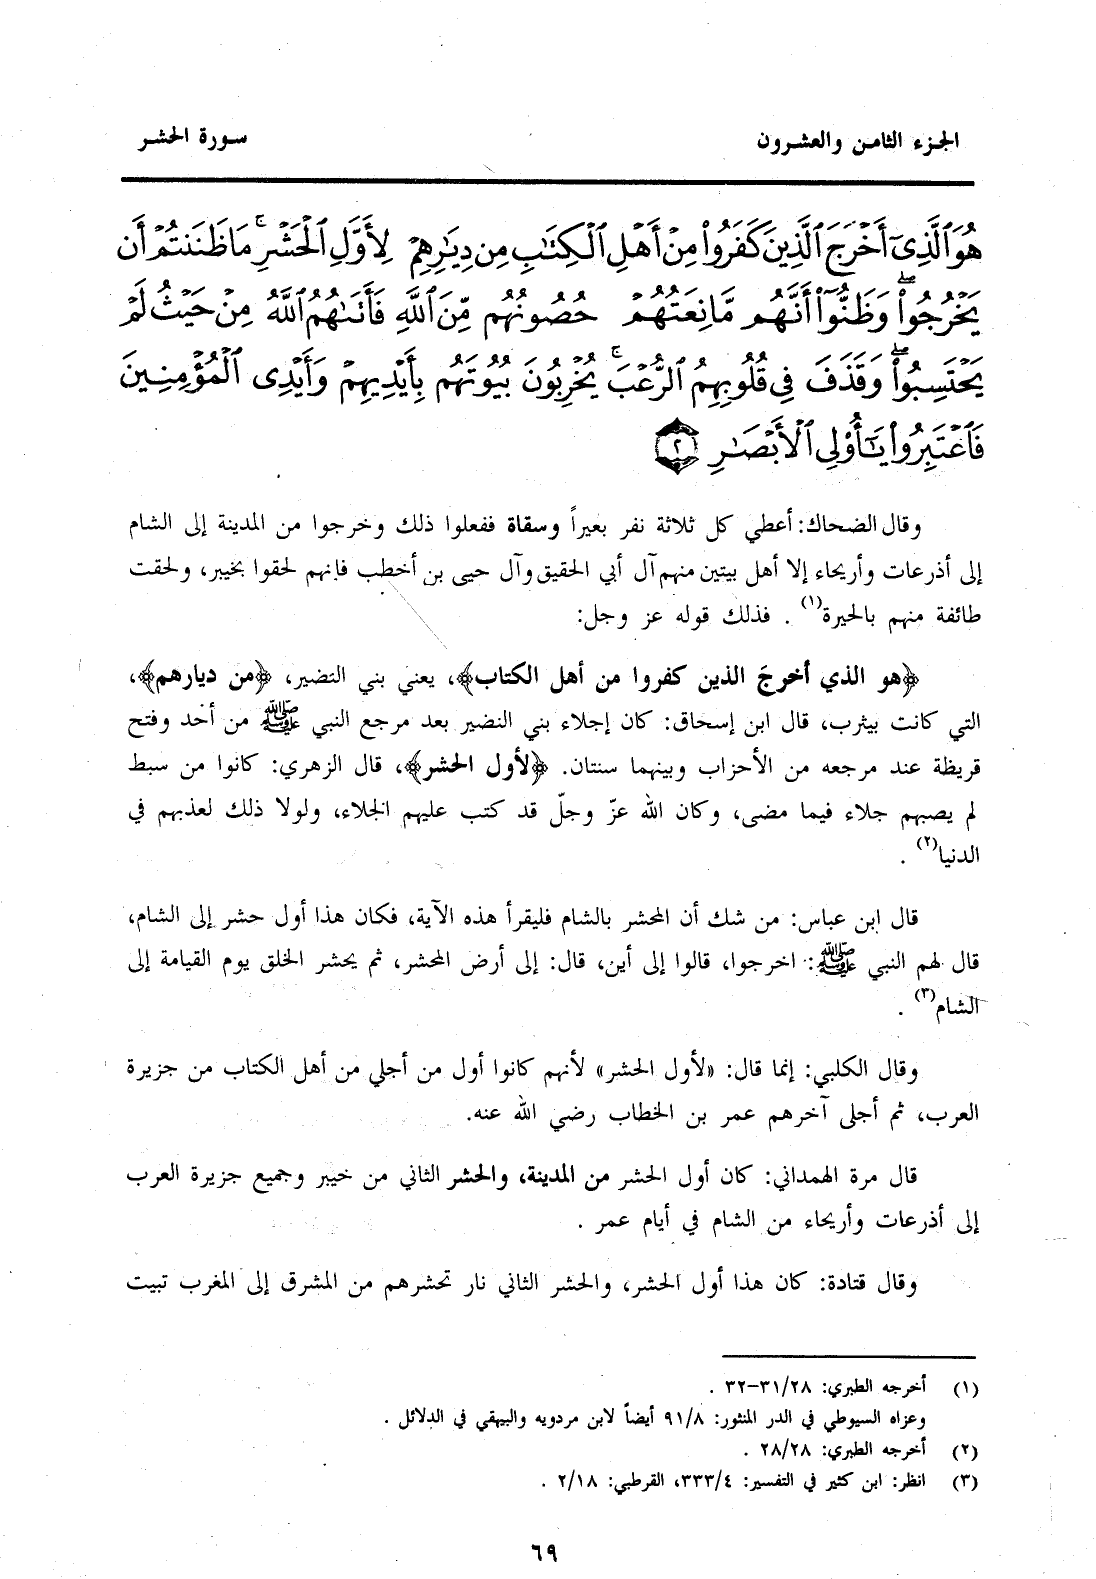 الجزء الثامن والعشرون
سورة الحشر
هُوَ ٱلَّذِىٓ أَخْرَجَ ٱلَّذِينَ كَفَرُوا۟ مِنْ أَهْلِ ٱلْكِتَٰبِ مِن دِيَٰرِهِمْ لِأَوَّلِ ٱلْحَشْرِ ۚ مَا ظَنَنتُمْ أَن
يَخْرُجُوا۟ ۖ وَظَنُّوٓا۟ أَنَّهُم مَّانِعَتُهُمْ حُصُونُهُم مِّنَ ٱللَّهِ فَأَتَىٰهُمُ ٱللَّهُ مِنْ حَيْثُ لَمْ
يَحْتَسِبُوا۟ ۖ وَقَذَفَ فِى قُلُوبِهِمُ ٱلرُّعْبَ ۚ يُخْرِبُونَ بُيُوتَهُم بِأَيْدِيهِمْ وَأَيْدِى ٱلْمُؤْمِنِينَ
فَٱعْتَبِرُوا۟ يَٰٓأُو۟لِى ٱلْأَبْصَٰرِ ٢
وقال الضحاك: أعطي كل ثلاثة نفر بعيراً وسقاة ففعلوا ذلك وخرجوا من المدينة إلى الشام
إلى أذرعات وأريحاء إلا أهل بيتين منهم آل أبي الحقيق وآل حيى بن أخطب فإنهم لحقوا بخيبر، ولحقت
طائفة منهم بالحيرة(١) . فذلك قوله عز وجل:
﴿هو الذي أخرجَ الذين كفروا من أهل الكتاب﴾، يعني بني النضير، ﴿من ديارهم﴾،
التي كانت بيثرب، قال ابن إسحاق: كان إجلاء بني النضير بعد مرجع النبي ﷺ من أحد وفتح
قريظة عند مرجعه من الأحزاب وبينهما سنتان. ﴿لأول الحشر﴾، قال الزهري: كانوا من سبط
لم يصبهم جلاء فيما مضى، وكان الله عزّ وجلّ قد كتب عليهم الجلاء، ولولا ذلك لعذبهم في
الدنيا(٢) .
قال ابن عباس: من شك أن المحشر بالشام فليقرأ هذه الآية، فكان هذا أول حشر إلى الشام،
قال لهم النبي ﷺ: اخرجوا، قالوا إلى أين، قال: إلى أرض المحشر، ثم يحشر الخلق يوم القيامة إلى
الشام(٣) .
وقال الكلبي: إنما قال: «لأول الحشر» لأنهم كانوا أول من أجلي من أهل الكتاب من جزيرة
العرب، ثم أجلى آخرهم عمر بن الخطاب رضي الله عنه.
قال مرة الهمداني: كان أول الحشر من المدينة، والحشر الثاني من خيبر وجميع جزيرة العرب
إلى أذرعات وأريحاء من الشام في أيام عمر .
وقال قتادة: كان هذا أول الحشر، والحشر الثاني نار تحشرهم من المشرق إلى المغرب تبيت
(١) أخرجه الطبري: ٣١/٢٨-٣٢ .
وعزاه السيوطي في الدر المنثور: ٩١/٨ أيضاً لابن مردويه والبيهقي في الدلائل .
(٢) أخرجه الطبري: ٢٨/٢٨ .
(٣) انظر: ابن كثير في التفسير: ٣٣٣/٤، القرطبي: ٢/١٨ .
٦٩